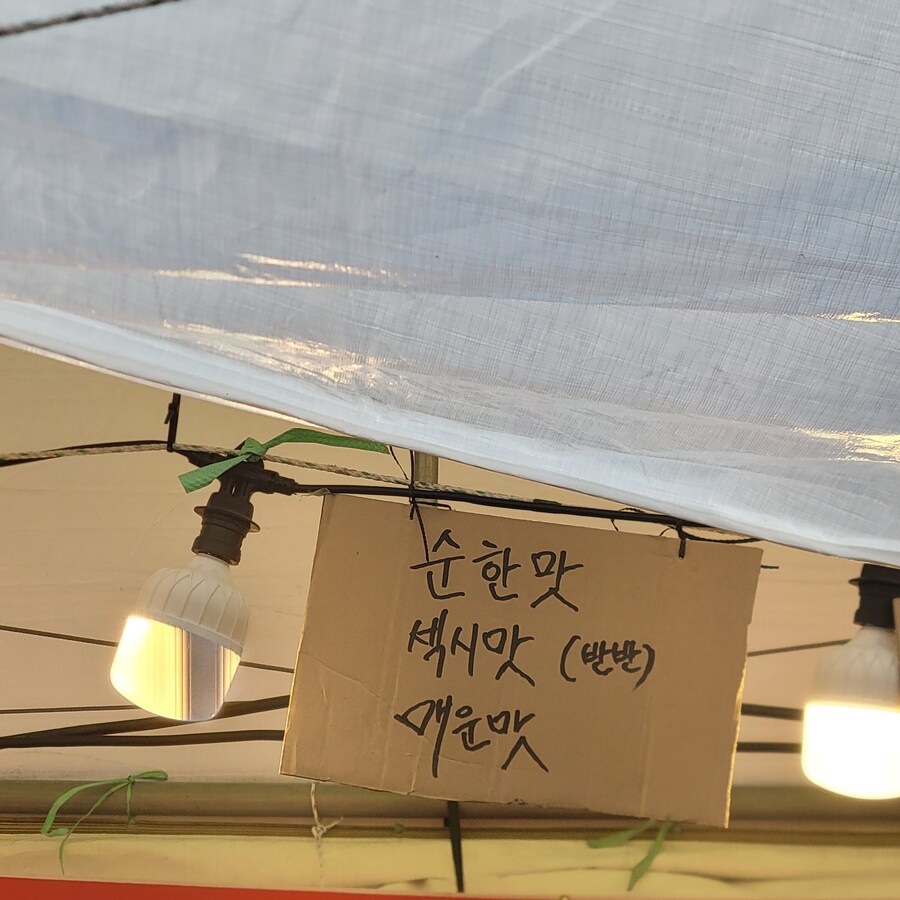 순한맛
섹시맛 (반반)
매운맛